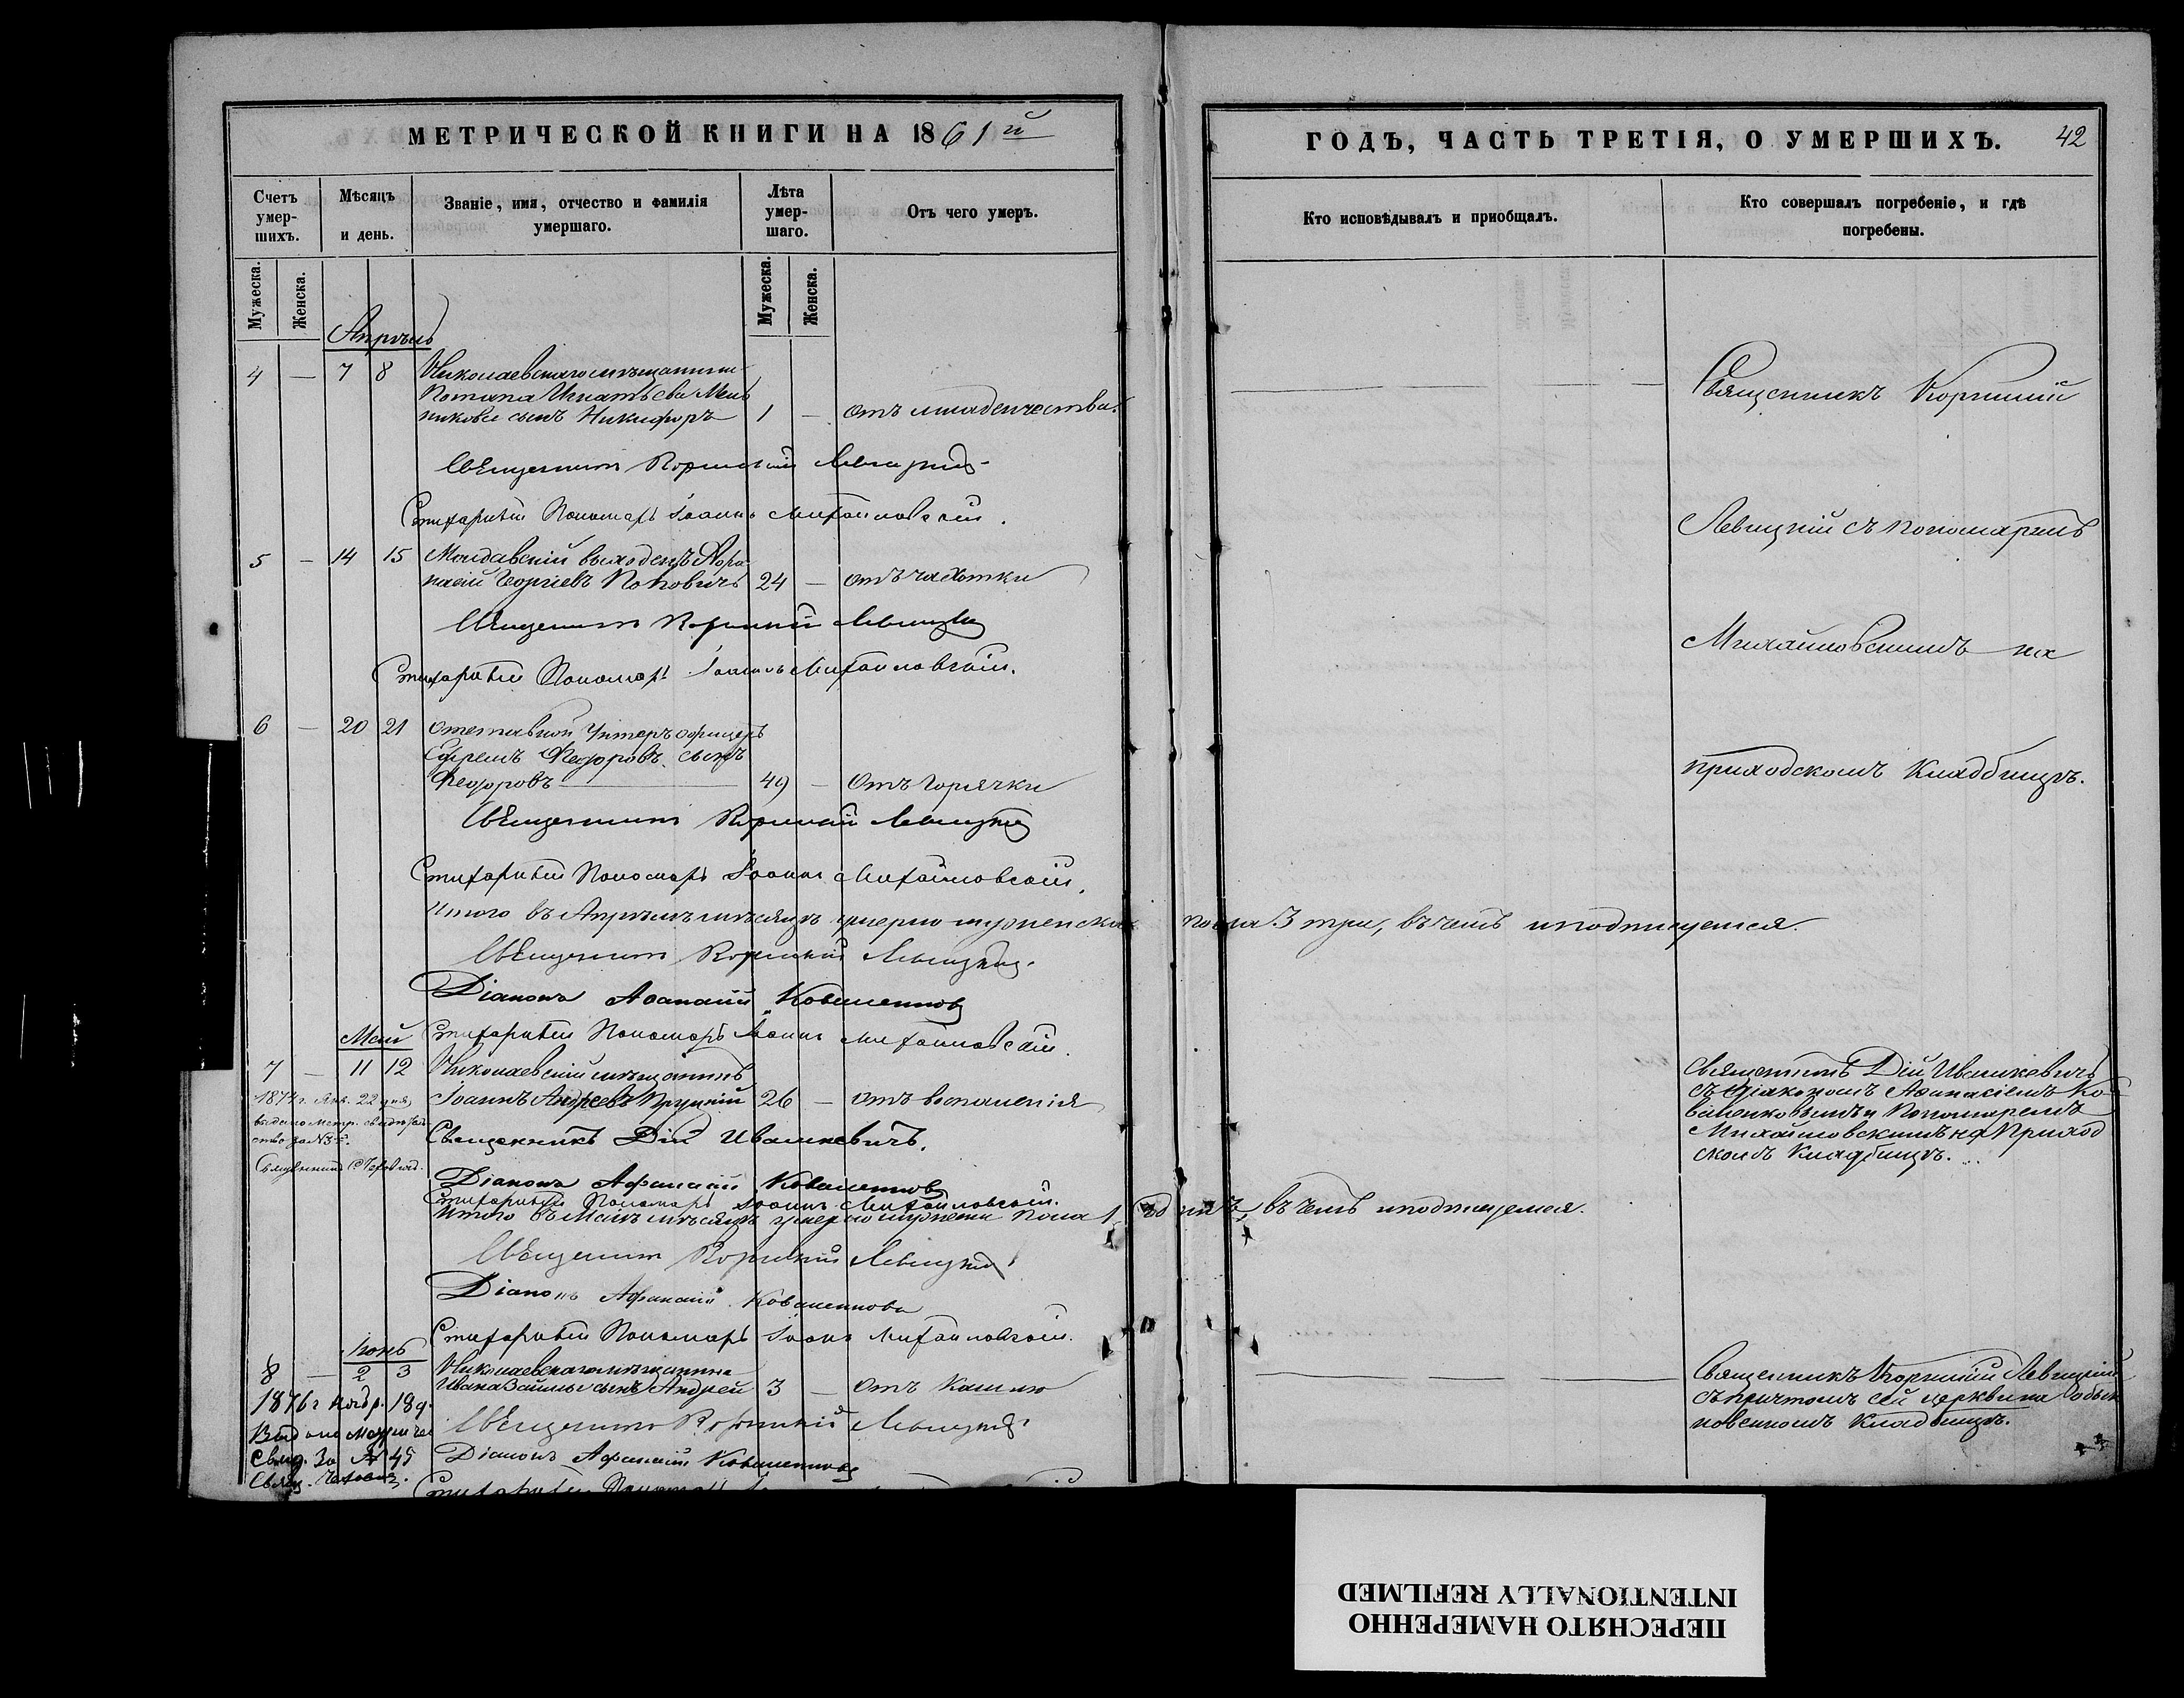 МЕТРИЧЕСКОЙ КНИГИ НА 1861й
Счетъ умер-шихъ.
Мѣсяцъ и день.
Званіе, имя, отчество и фамилія умершаго.
Лѣта умер-шаго.
Отъ чего умеръ.
Мужеска.
Женска.
Мужеска.
Женска.
Апрѣль
4 — 7 8 Николаевскаго мѣщанина
Потапа Игнатьева Мель
никова сынъ Никифоръ 1 — отъ младенчества.
Священникъ Корнилій Левицкій
Стихарный Пономарь Іоаннъ Михайловскій.
5 — 14 15 Молдавскій выходецъ
Георгіевъ Поповичъ 24 — отъ чахотки
Священникъ Корнилій Левицкій
Стихарный Пономарь Іоаннъ Михайловскій.
6 — 20 21 Отставной Унтеръ офицеръ
Ефремъ Феодоровъ сынъ
Феодоровъ 49 — Отъ горячки
Священникъ Корнилій Левицкій
Стихарный Пономарь Іоаннъ Михайловскій.
Итого въ Апрѣлѣ мѣсяцѣ умерло мужеска
Священникъ Корнилій Левицкій.
Діаконъ Афанасій Коваленковъ
Май
Стихарный Пономарь Іоаннъ Михайловскій.
7 — 11 12 Николаевскій мѣщанинъ
Іоаннъ Андреевъ 26 — отъ воспаленія
1874 г. Янв. 22 дня
выдано метр. свидѣтель
ство за №
Священникъ
Священникъ Дій Ивашкевичъ.
Діаконъ Афанасій Коваленковъ
Стихарный Пономарь Іоаннъ Михайловскій.
Итого въ Маѣ мѣсяцѣ умерло мужеска пола 1
Священникъ Корнилій Левицкій
Діаконъ Афанасій Коваленковъ
Стихарный Пономарь Іоаннъ Михайловскій.
Іюнь
8 — 2 3 Николаевскаго мѣщанина
Ивана сынъ Андрей 3 — отъ кашлю
1876 г Нояб. 18 д.
Выдано метриче
свид. За № 45
Свящ.
Священникъ Корнилій Левицкій
Діаконъ Афанасій Коваленковъ
Стихарный Пономарь
ГОДЪ, ЧАСТЬ ТРЕТІЯ, О УМЕРШИХЪ.
42
Кто исповѣдывалъ и пріобщалъ.
Кто совершалъ погребеніе, и гдѣ погребены.
Священникъ Корнилій
Левицкій съ пономаремъ
Михайловскимъ на
приходскомъ кладбищѣ.
пола 3 три, въ чемъ и подпишемся.
Священникъ Дій Ивашкевичъ
съ діакономъ Афанасіемъ Ко
валенковымъ и Пономаремъ
Михайловскимъ на Приход
скомъ кладбищѣ.
одинъ, въ чемъ и подпишемся.
Священникъ Корнилій Левицкій
съ причтомъ сей церкви на обык
новенномъ кладбищѣ.
ПЕРЕСНЯТО НАМЕРЕННО
INTENTIONALLY REFILMED